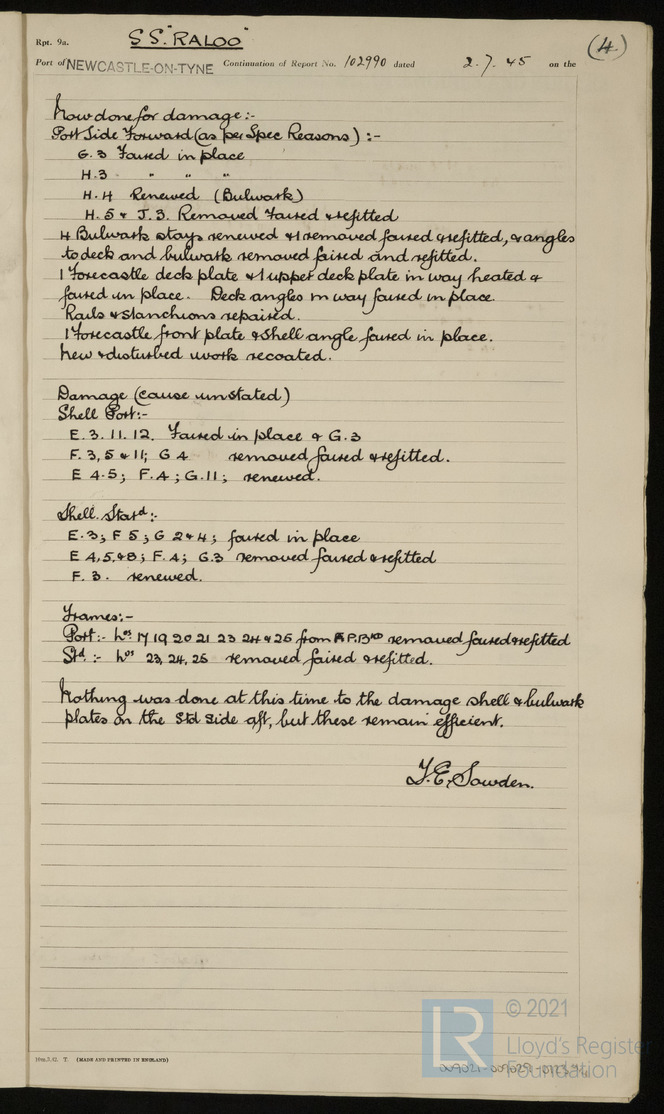 (4)
Rpt. 9a. S.S. "RALOO"
Port of NEWCASTLE-ON-TYNE Continuation of Report No. 102990 dated 2.7.45 on the
Now done for damage:-
Port Side Forward (as per Spec Reasons):-
G.3 Faired in place
H.3 " " "
H.4 Renewed (Bulwark)
H.5 & J.3. Removed Faired & refitted
4 Bulwark stays renewed & 1 removed faired & refitted, & angles
to deck and bulwark removed faired and refitted.
1 Forecastle deck plate & 1 upper deck plate in way heated &
faired in place. Deck angles in way faired in place.
Rails & stanchions repaired.
1 Forecastle front plate & shell angle faired in place.
New & disturbed work recoated.
Damage (cause unstated)
Shell Port:-
E. 3. 11. 12. Faired in place & G.3
F. 3, 5 & 11; G 4 removed faired & refitted.
E 4.5; F.4; G.11; renewed.
Shell Stard:-
E.3; F 5; G 2 & 4; faired in place
E 4,5,&8; F.4; G.3 removed faired & refitted
F. 3. renewed.
Frames:-
Port:- Nos 17 19 20 21 23 24 & 25 from F.P.BHD removed faired & refitted
Std:- Nos 23, 24, 25 removed faired & refitted.
Nothing was done at this time to the damage shell & bulwark
plates on the Std Side aft, but these remain efficient.
T.E. Sowden.
10m.5.42. T. (MADE AND PRINTED IN ENGLAND)
LR © 2021
Lloyd's Register
Foundation